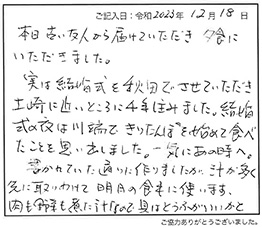 ご記入日：令和2023年 12月 18日
本日古い友人から届けていただき 夕食に
いただきました。
実は結婚式を秋田でさせていただき
土崎に近いところに4年住みました。結婚
式の夜は川端できりたんぽを始めて食べ
たことを思い出しました。一気にあの時へ。
書かれていた通りに作りましたが、汁が多く
先に取りわけて明日の食事に使います。
肉も野菜も煮た汁なので具はとうふがいいかと
ご協力ありがとうございました。